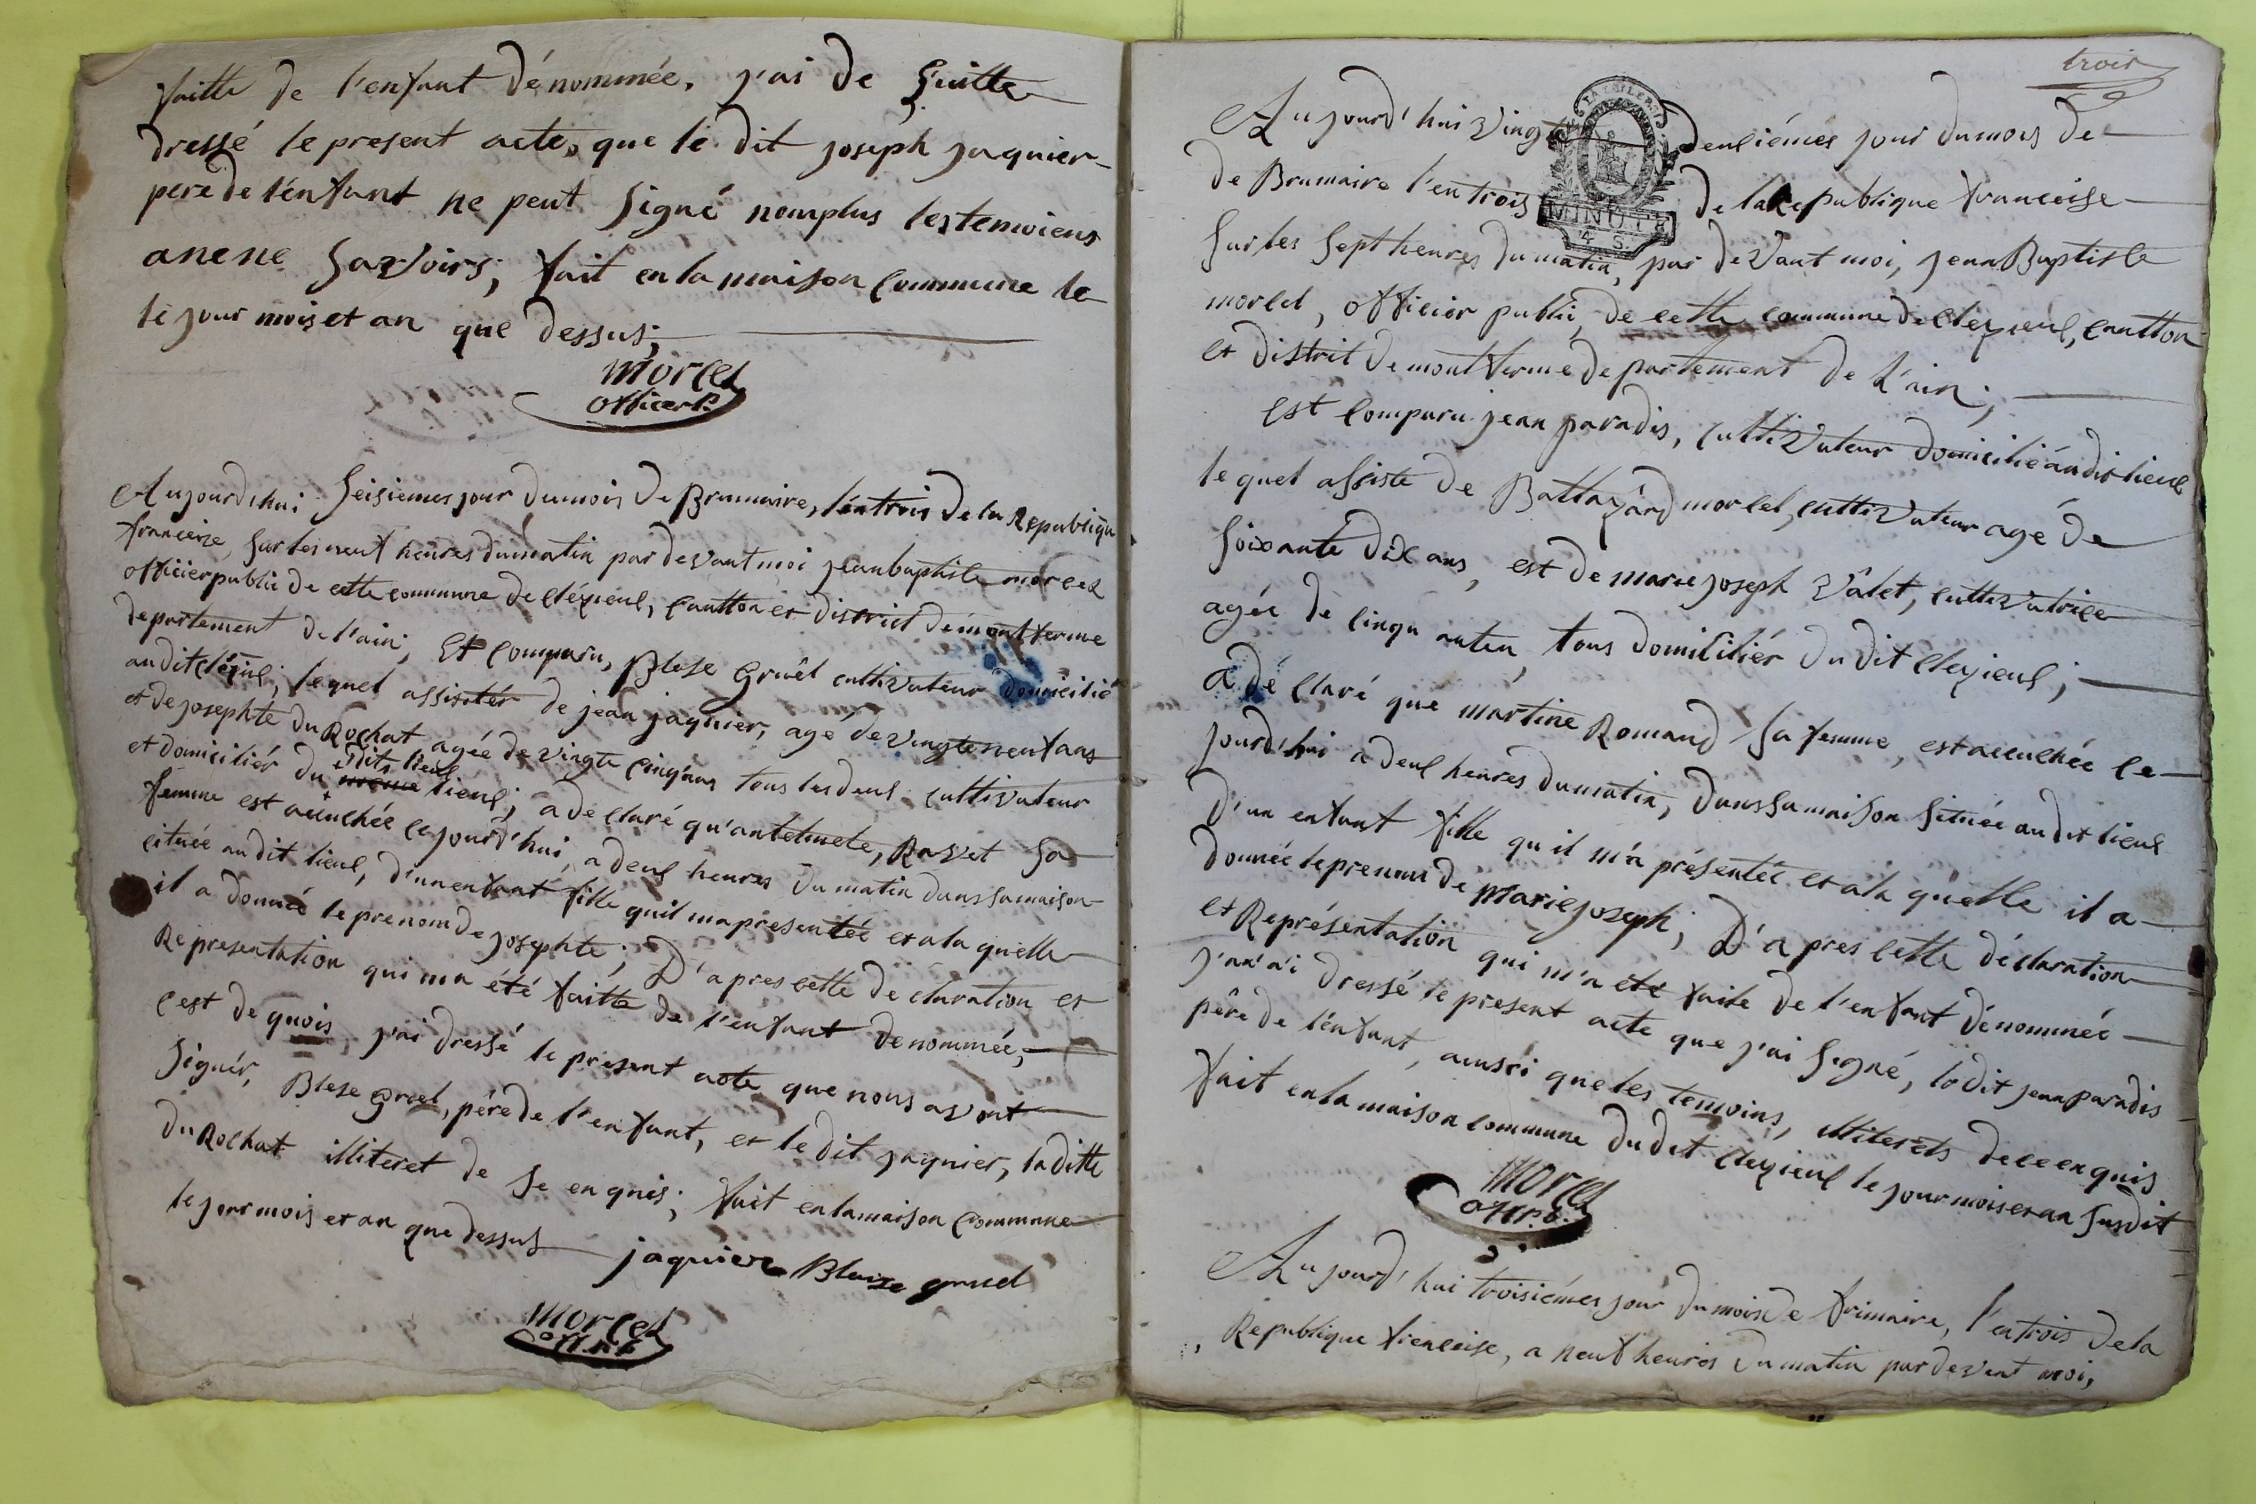 faitte de l'enfant dénommée, j'ai de suitte
dressé le present acte, que le dit joseph jaquier
pere de l'enfant ne peut signé nomplus les temoiens
anene savoirs; fait en la maison Commune le
le jour mois et an que dessus;
morcel
officier P.
Aujourd'hui seisiemes jour du mois de Brumaire, l'en trois de la Republiqu
franceise, sur les neuf heures du matin par devant moi jean baptiste morcel
officier public de cette commune de cléyzieul, cantton et district de montferme
departement de l'ain; Et comparu, Blese Gruêl cultivateur domicilié
au dit cléyzieul; lequel assistér de jean jaquier, agé de vingte neuf ans
et de josephte du Rochat agée de vingte cinq ans tous les deux cultivateur
et domiciliér du dits lieus lieus; a declaré qu'antelmete, Ravet sa
femme est acuchée ce jourd'hui, a deux heures du matin dans sa maison
cituée au dit lieus, d'un enfant fille quil ma presentée et a la quelle
il a donnée le prenom de josephte; D'apres cette declaration et
Representation qui ma été faitte de l'enfant denommée;
c'est de quois, j'ai dressé le present acte que nous avont
signér, Blese gruel, pére de l'enfant, et le dit jaquier, la ditte
du Rochat illiteret de se enquis; fait en la maison Commune
le jour mois et an que dessus
jaquier Blaize gruel
morcel
offr P.
trois
Aujourd'hui vingt deuxiémes jour du mois de
de Brumaire l'en trois de la Republique franceise
MINUTE
4 S.
sur les sept heures du matin, par devant moi, jean Baptiste
morcel, officier public, de cette commune de cleyzieul, cantton
et distrit de montferme departement de l'ain;
est comparu jean paradis, cultivateur domicilié au dit lieus
le quel assiste de Baltazard morcel, cultivateur agé de
soixante dix ans, est de marie joseph vâlet, cultivatrice
agée de cinqu anten, tous domiciliér du dit cleyzieul;
a dé claré que martine Romand sa femme, est acuchée ce
jourd'hui a deux heures du matin, dans sa maison située au dit lieus
d'un enfant fille qu'il m'a présentée et a la quelle il a
donnée le prenom de marie joseph; D'apres cette déclaration
et Représentation qui m'a été faite de l'enfant dénommée
j'an'ai dressé le present acte que j'ai signé, le dit jean paradis
pêre de l'enfant, aussi que les temoins, illiterets de ce enquis
fait en la maison commune du dit cleyzieul le jour mois et an susdit
morcel
offr. P.
Aujourd'hui troisiémes jour du mois de frimaire, l'en trois de la
Republique franceise, a neuf heures du matin par devant moi,